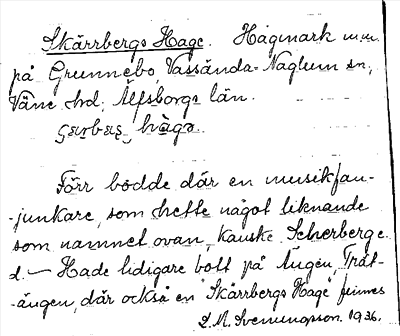 Skärrbergs Hage. Hagmark m.m.
på Grunnebo, Vassända-Naglum sn,
Väne hd, Älfsborgs län.
hàgə.
Förr bodde där en musikfan-
-junkare, som hette något liknande
som namnet ovan, kanske Scherberg e.
d. — Hade tidigare bott på Ängen, Trät-
-ängen, där också en "Skärrbergs Hage" finnes
L.M. Svenungsson. 1936.